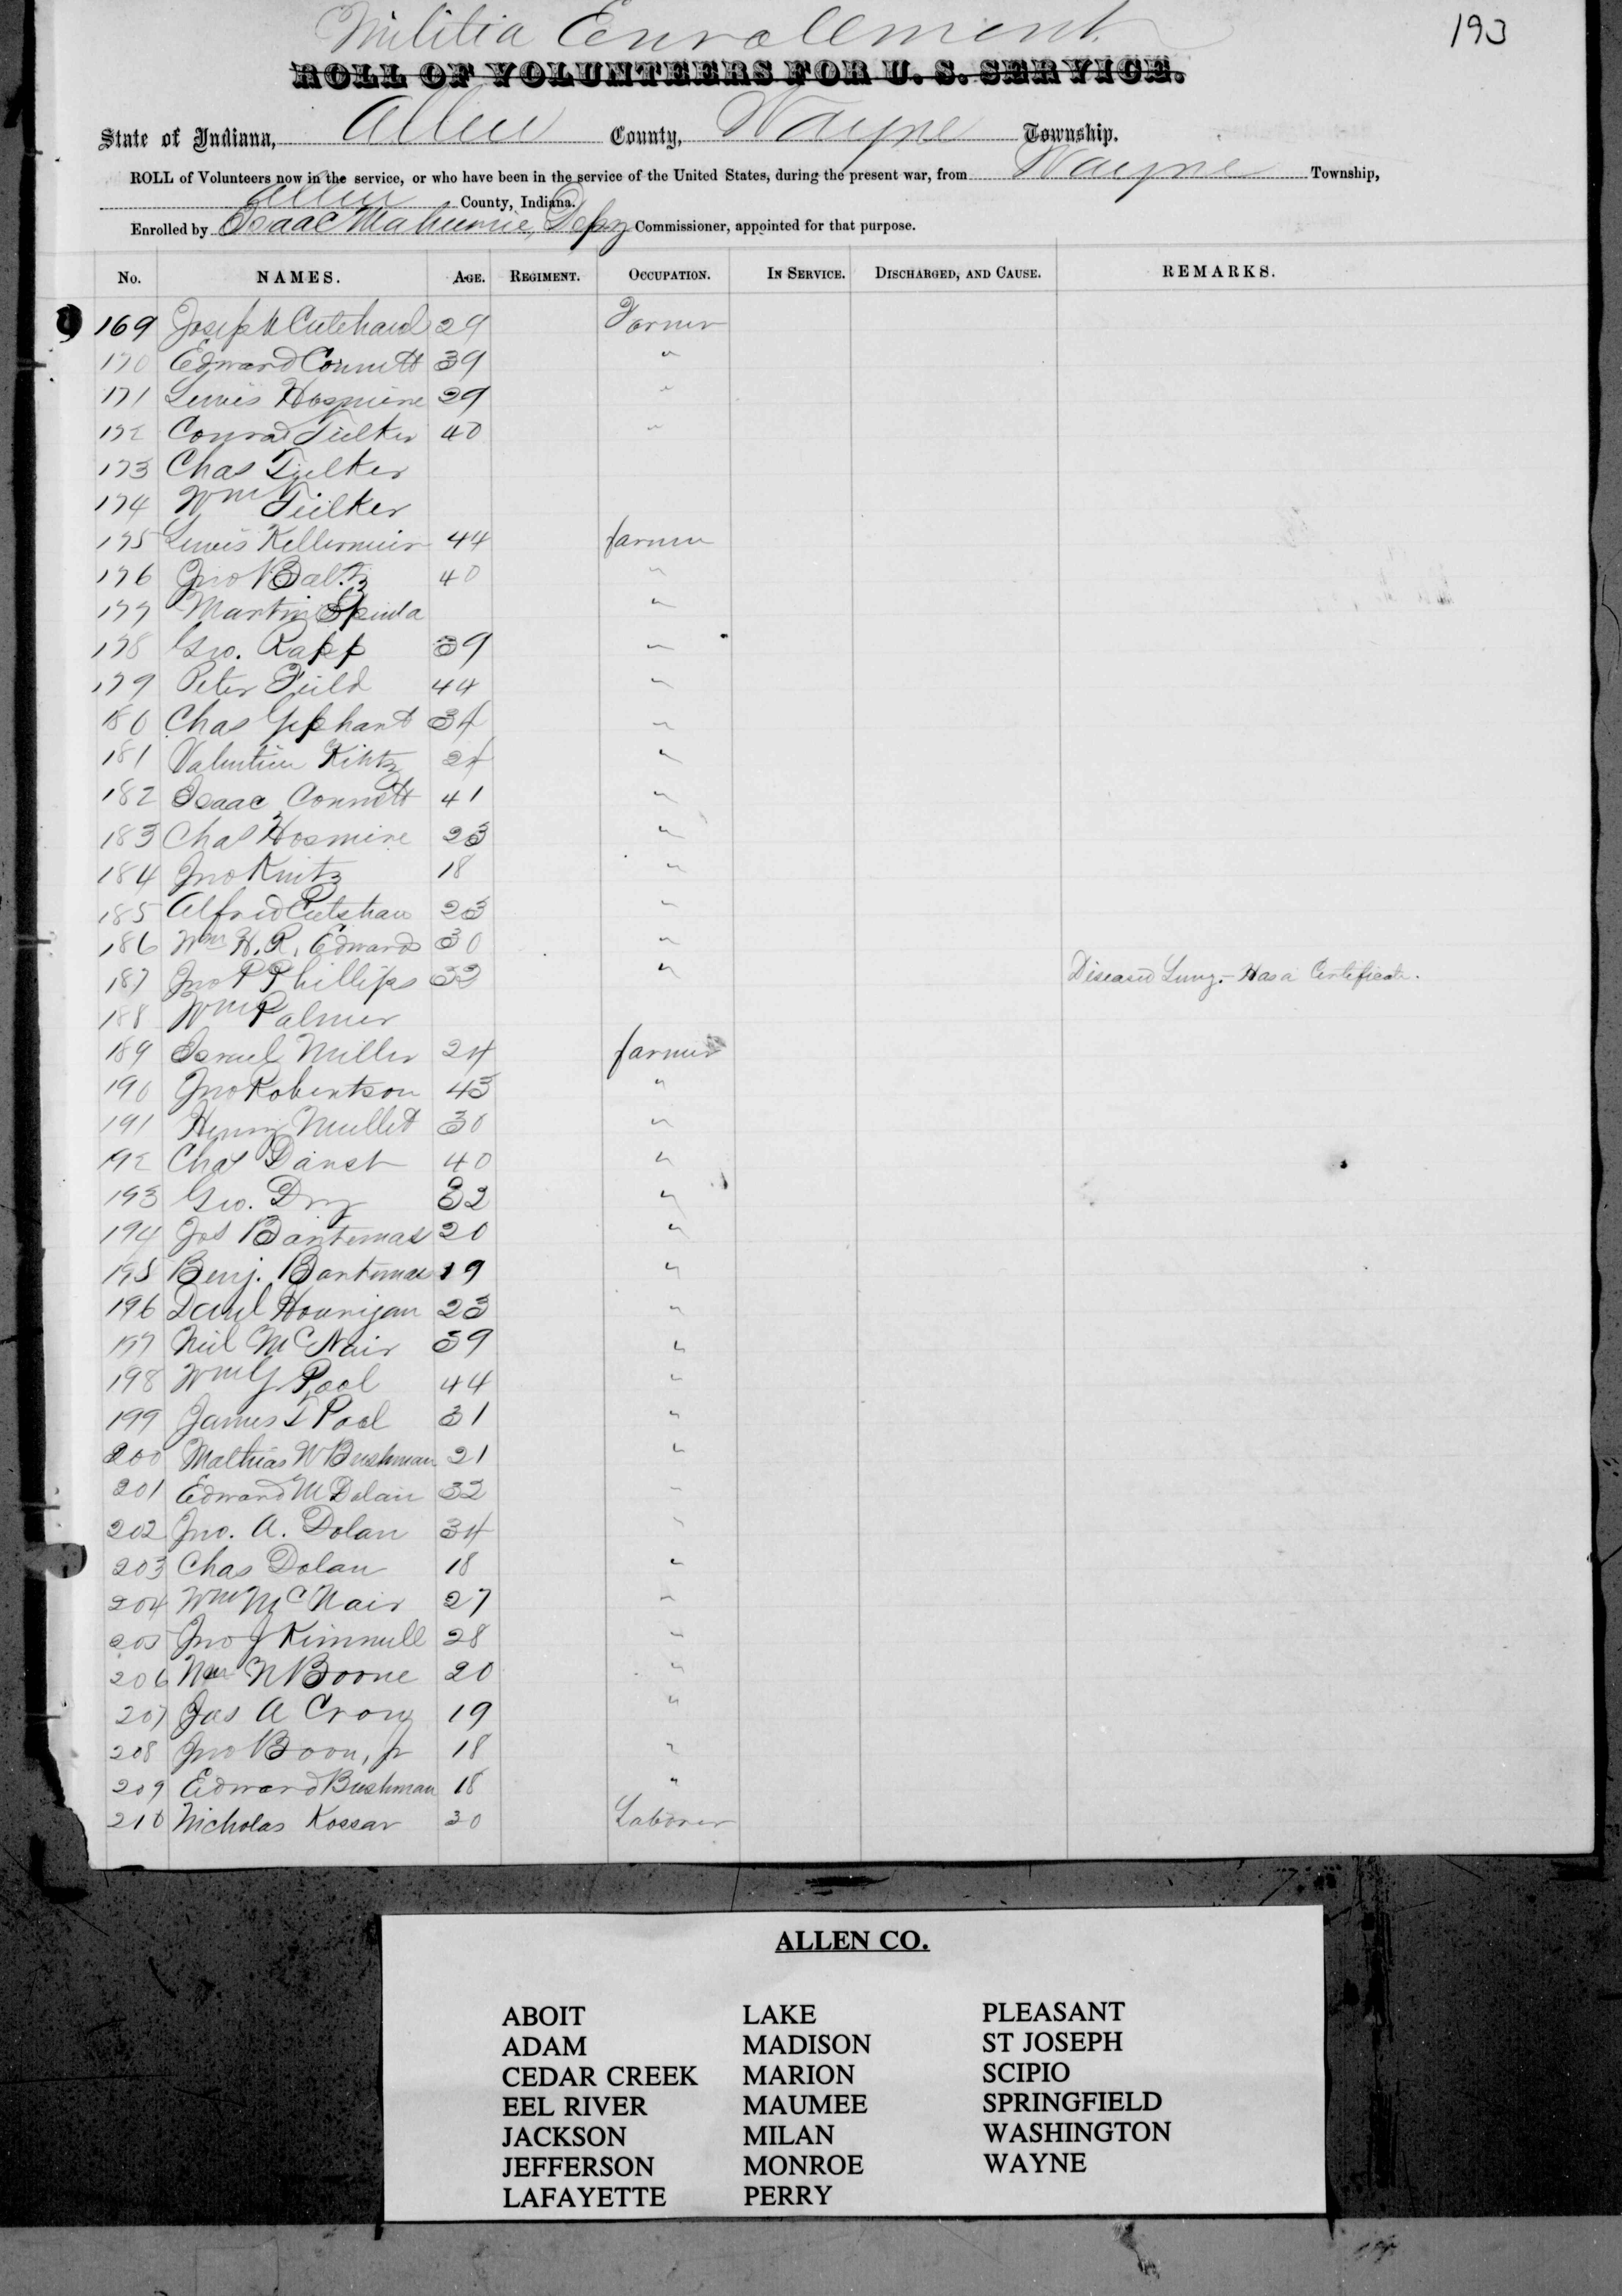 Militia Enrollment
193
ROLL OF VOLUNTEERS FOR U. S. SERVICE.
State of Indiana, Allen County, Wayne Township.
ROLL of Volunteers now in the service, or who have been in the service of the United States, during the present war, from Wayne Township,
Allen County, Indiana.
Enrolled by Isaac Depy Commissioner, appointed for that purpose.
No. NAMES. AGE. REGIMENT. OCCUPATION. IN SERVICE. DISCHARGED, AND CAUSE. REMARKS.
169 Joseph 29 Farmer
170 Edward Connett 39 "
171 Lewis 29 "
172 Conrad Tielker 40 "
173 Chas Tielker
174 Wm Tielker
175 Lewis Kellermeir 44 farmer
176 Jno Baltz 40 "
177 Martin "
178 Geo. Rapp 39 "
179 Peter Feild 44 "
180 Chas Gephant 34 "
181 Valentine Kintz 24 "
182 Isaac Connett 41 "
183 Chas Hosmire 23 "
184 Jno Kintz 18 "
185 Alfred Cutshaw 23 "
186 Wm H. R. Edwards 30 "
187 Jno P Phillips 32 " Diseased Lung. - Has a Certificate.
188 Wm Palmer
189 Israel Miller 24 farmer
190 Jno Robertson 43 "
191 Henry Mullet 30 "
192 Chas Danst 40 "
193 Geo. Dry 32 "
194 Jos Bantemas 20 "
195 Benj. Bantemas 19 "
196 Danl Hourigan 23 "
197 Neil McNair 39 "
198 Wm G Pool 44 "
199 James T Pool 31 "
200 Mathias W Bushman 21 "
201 Edward M Dolan 32 "
202 Jno. A. Dolan 34 "
203 Chas Dolan 18 "
204 Wm McNair 27 "
205 Jno J Kimmell 28 "
206 Wm N Boone 20 "
207 Jas A Crow 19 "
208 Jno Boon, jr 18 "
209 Edward Bushman 18 "
210 Nicholas Kossar 30 Laborer
ALLEN CO.
ABOIT LAKE PLEASANT
ADAM MADISON ST JOSEPH
CEDAR CREEK MARION SCIPIO
EEL RIVER MAUMEE SPRINGFIELD
JACKSON MILAN WASHINGTON
JEFFERSON MONROE WAYNE
LAFAYETTE PERRY